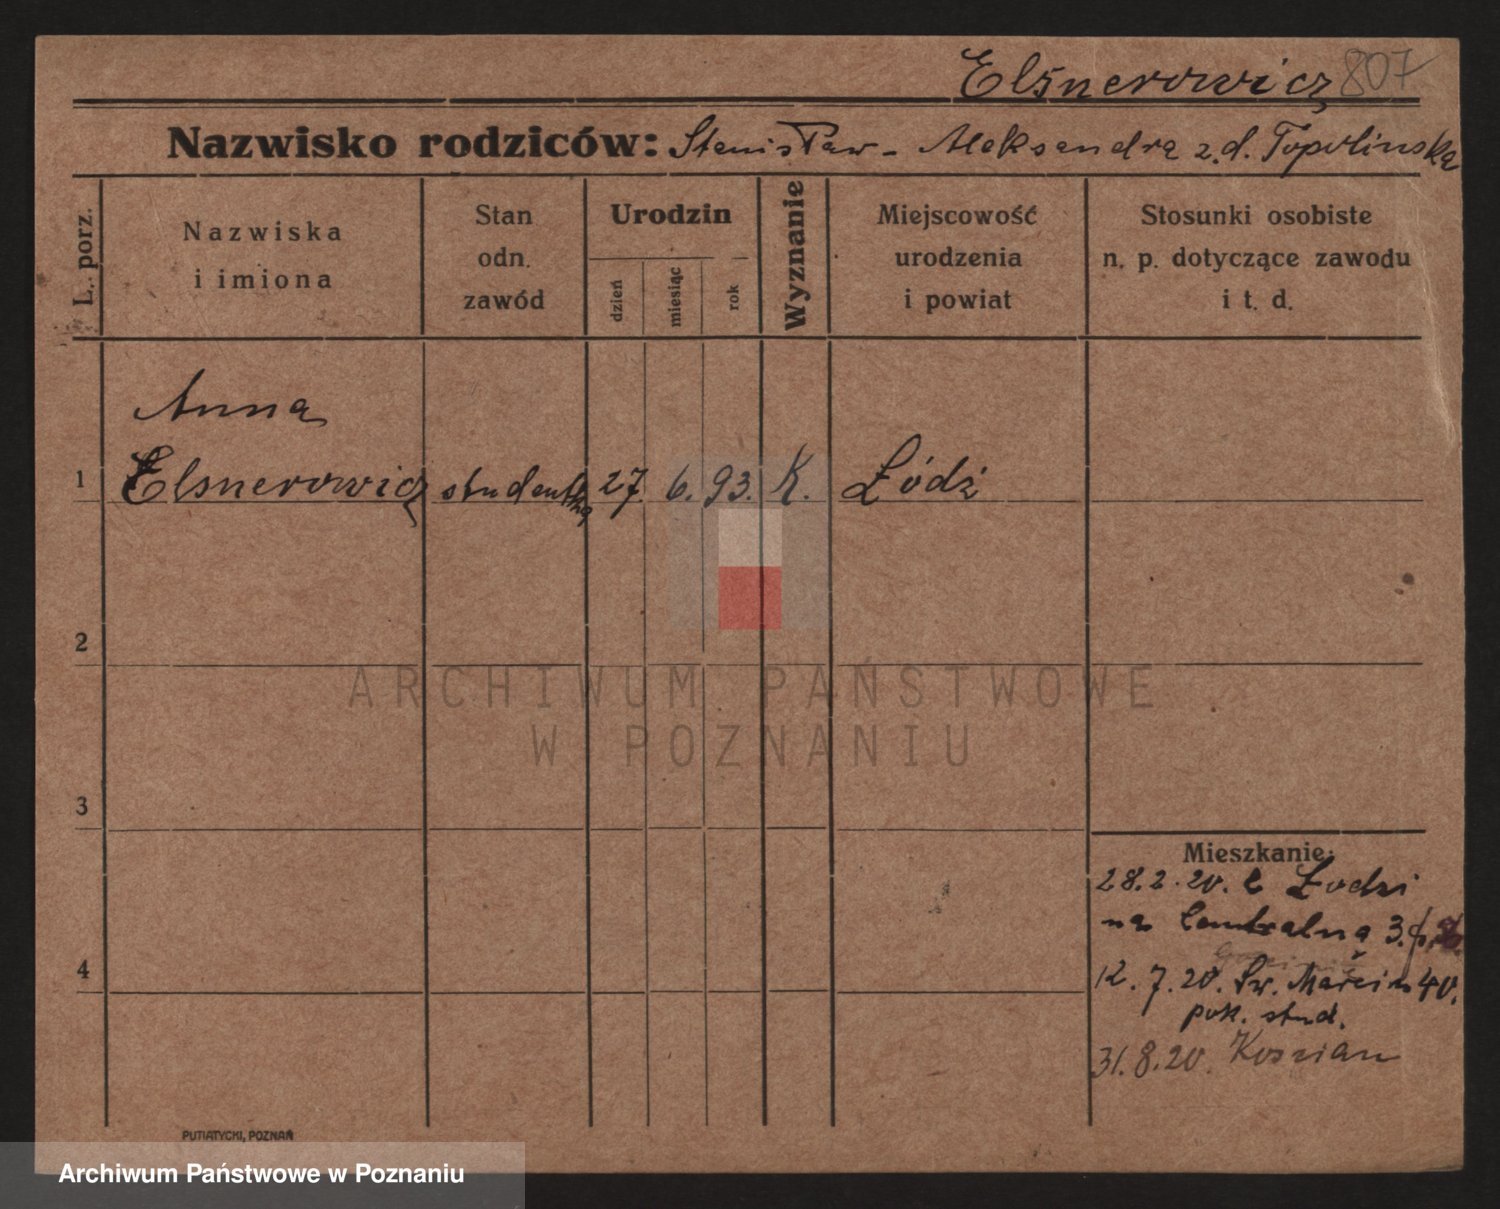 Elsnerowicz 807
Nazwisko rodziców: Stanisław - Aleksandra z.d. Topolinska
L. porz.
Nazwiska
i imiona
Stan
odn.
zawód
Urodzin
dzień
miesiąc
rok
Wyznanie
Miejscowość
urodzenia
i powiat
Stosunki osobiste
n. p. dotyczące zawodu
i t. d.
Anna
1 Elsnerowicz studentka 27. 6. 93. K. Łódź
2
ARCHIWUM PAŃSTWOWE
W POZNANIU
3
Mieszkanie:
28.2.20. Łodzi
na Centralna 3.
4
12.7.20. Św. Marcin 40.
pok. stud.
31.8.20. Koszian
PUTIATYCKI, POZNAŃ
Archiwum Państwowe w Poznaniu